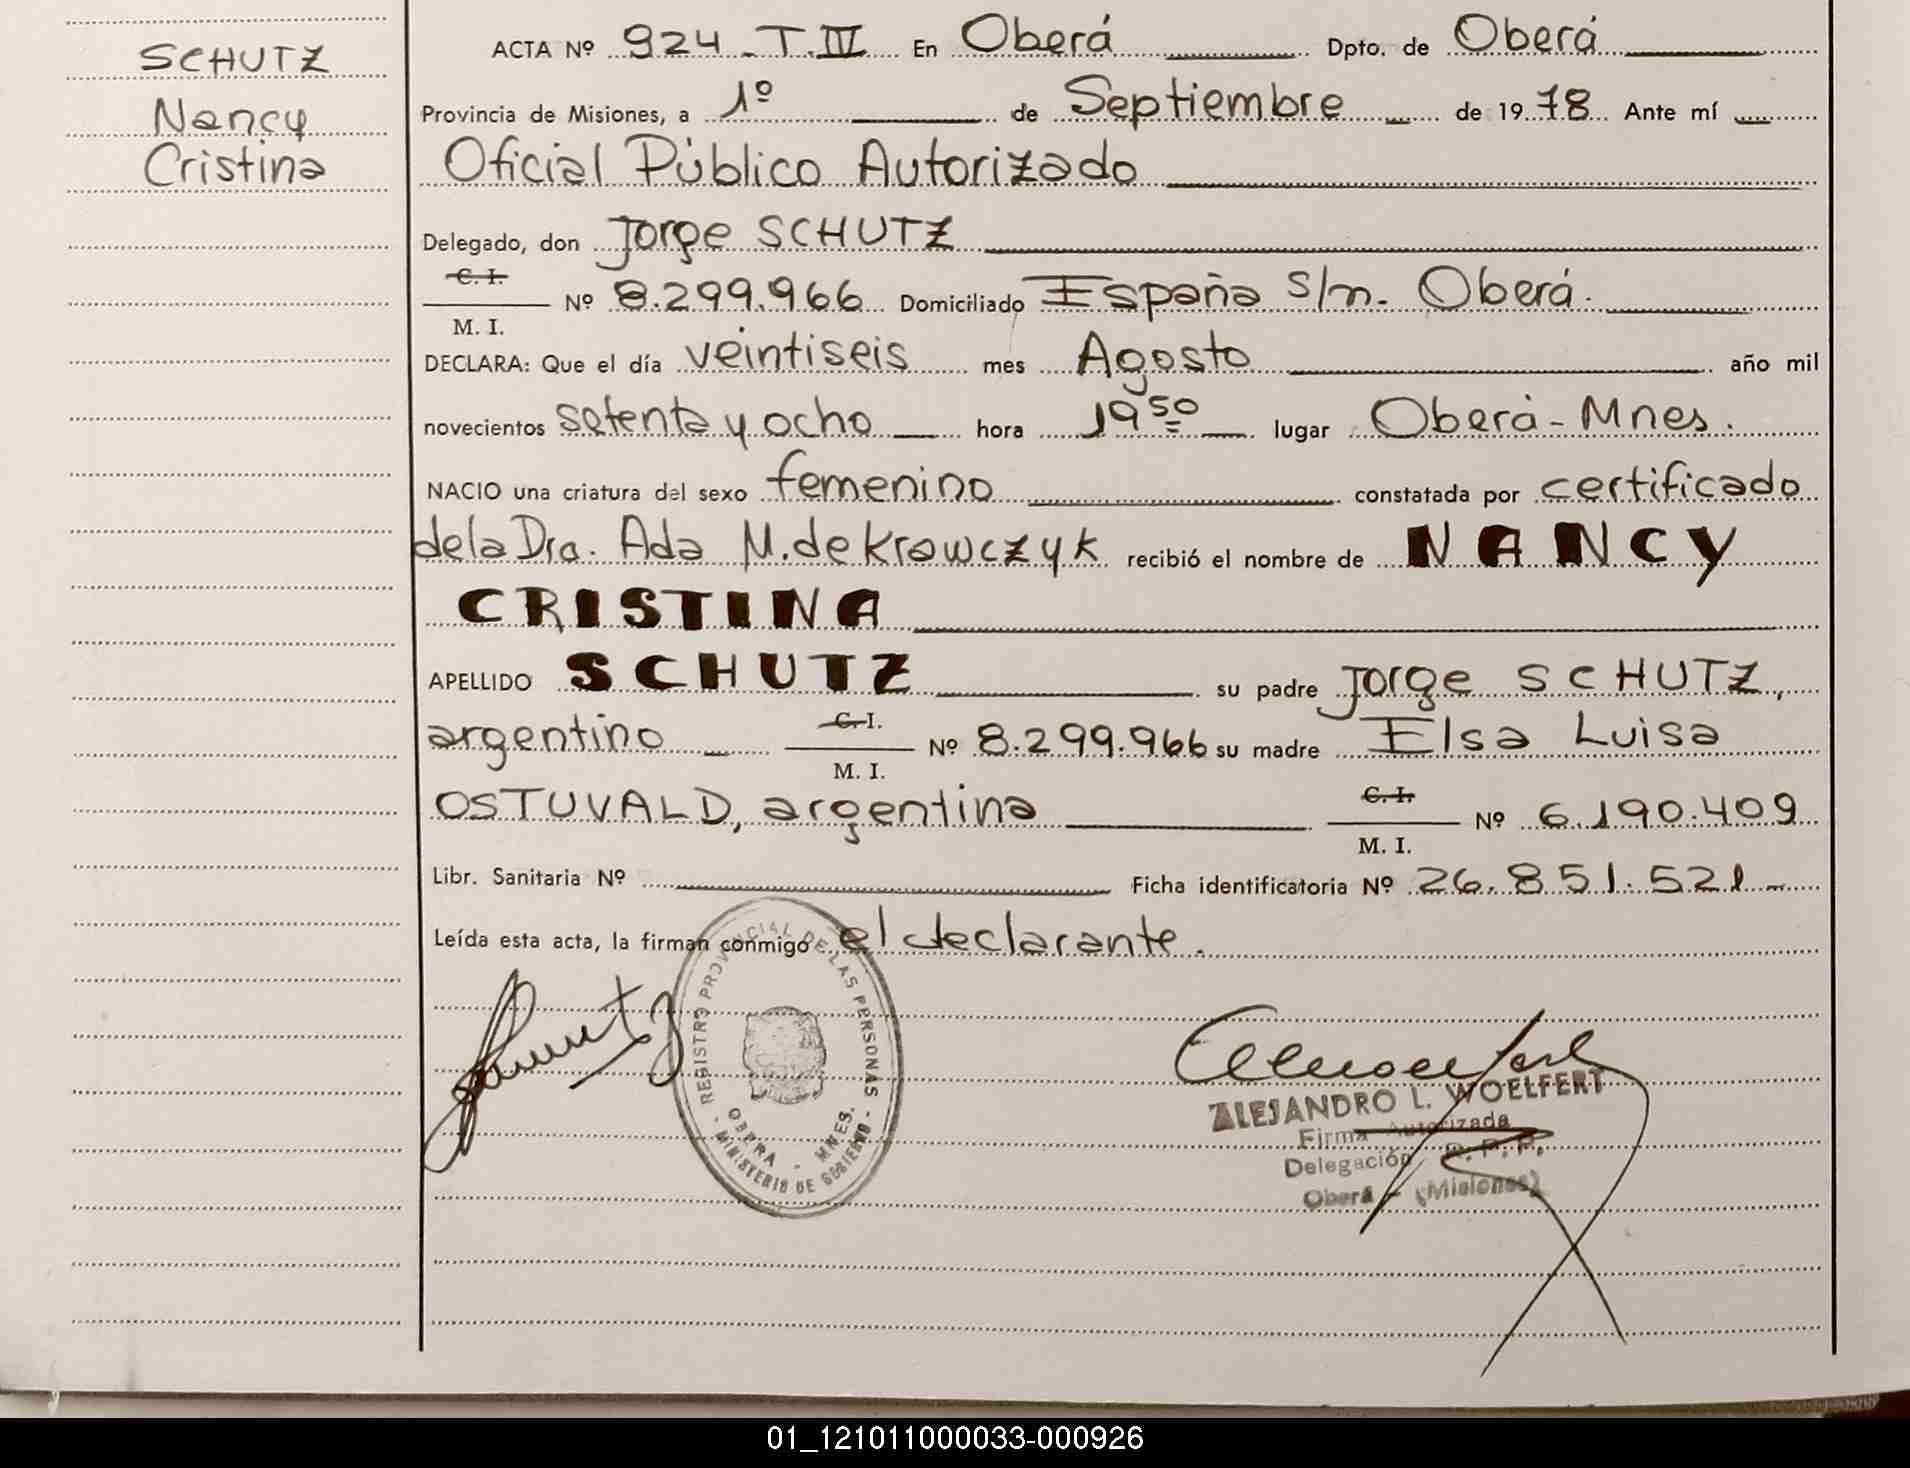 SCHUTZ
Nancy
Cristina
ACTA Nº 924 - T. III En Oberá Dpto. de Oberá
Provincia de Misiones, a 1º de Septiembre de 1978 Ante mí
Oficial Público Autorizado
Delegado, don Jorge SCHUTZ
C. I.
M. I.
Nº 8.299.966 Domiciliado España s/n. Oberá.
DECLARA: Que el día veintiseis mes Agosto año mil
novecientos setenta y ocho hora 19 50 lugar Oberá - Mnes.
NACIO una criatura del sexo femenino constatada por certificado
de la Dra. Ada M. de Krawczyk recibió el nombre de NANCY
CRISTINA
APELLIDO SCHUTZ su padre Jorge SCHUTZ,
argentino C. I. M. I. Nº 8.299.966 su madre Elsa Luisa
OSTUVALD, argentina C. I. M. I. Nº 6.190.409
Libr. Sanitaria Nº Ficha identificatoria Nº 26.851.521
Leída esta acta, la firman conmigo el declarante.
REGISTRO PROVINCIAL DE LAS PERSONAS
OBERA - MNES.
- MINISTERIO DE GOBIERNO -
ALEJANDRO L. WOELFERT
Firma Autorizada
Delegación R. P. P.
Oberá - (Misiones)
01_121011000033-000926